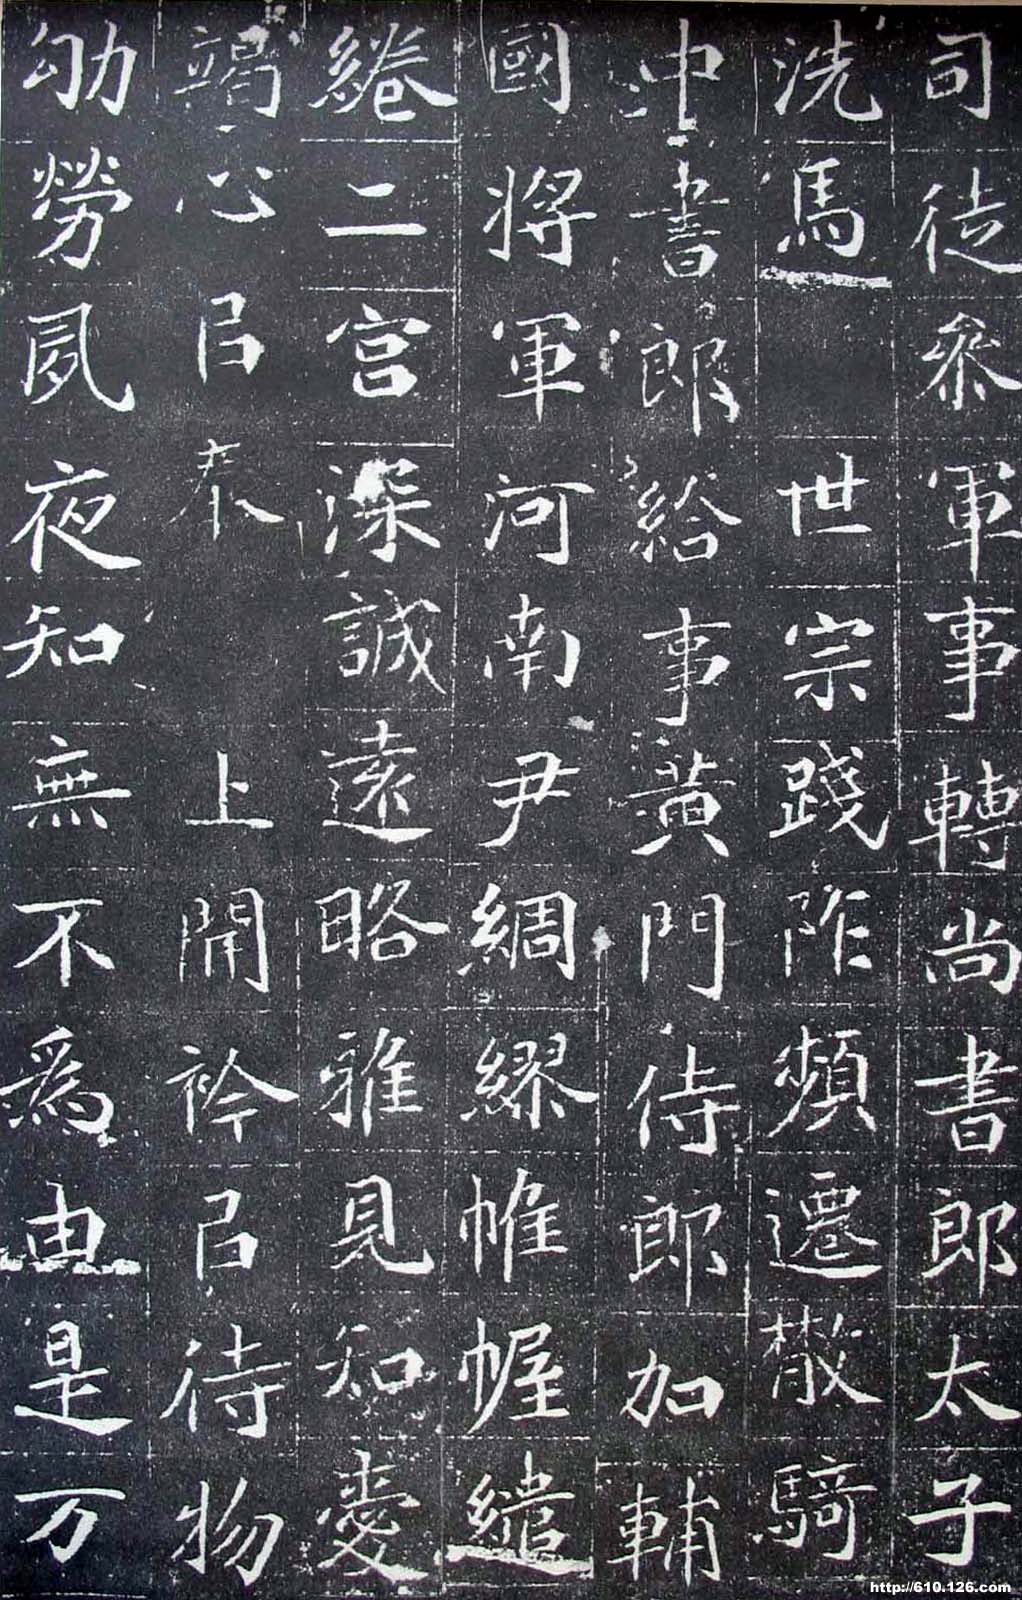 司徒叅軍事轉尚書郎太子
洗馬 世宗踐阼頻遷散騎
中書郎給事黃門侍郎加輔
國將軍河南尹綢繆帷幄繾
綣二宮深誠遠略雅見知愛
竭心 㠯奉 上開衿㠯待物
劬勞夙夜知無不爲由是万
http://610.126.com